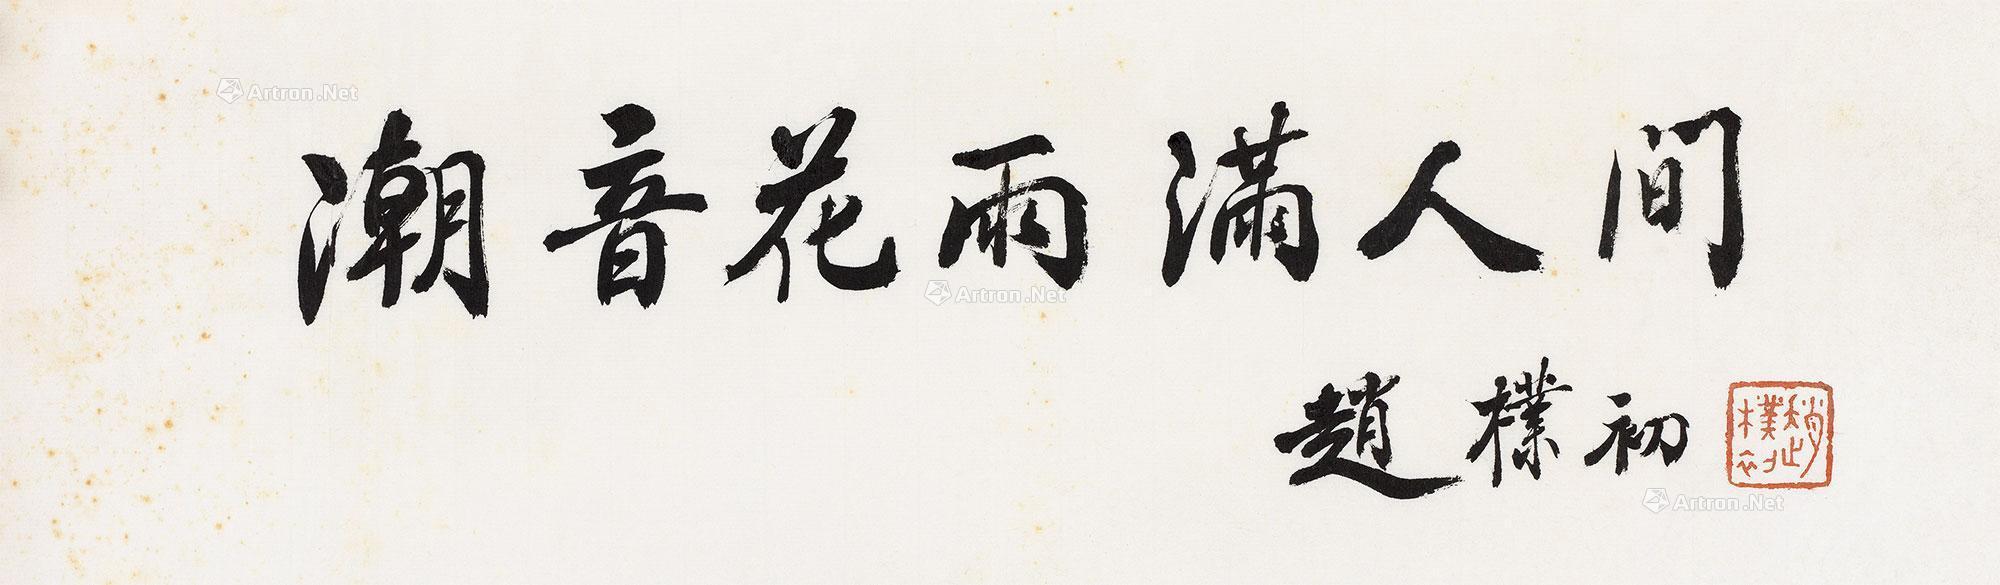 Artron.Net
潮音花雨滿人間
Artron.Net
趙樸初
趙樸初
Artron.Net